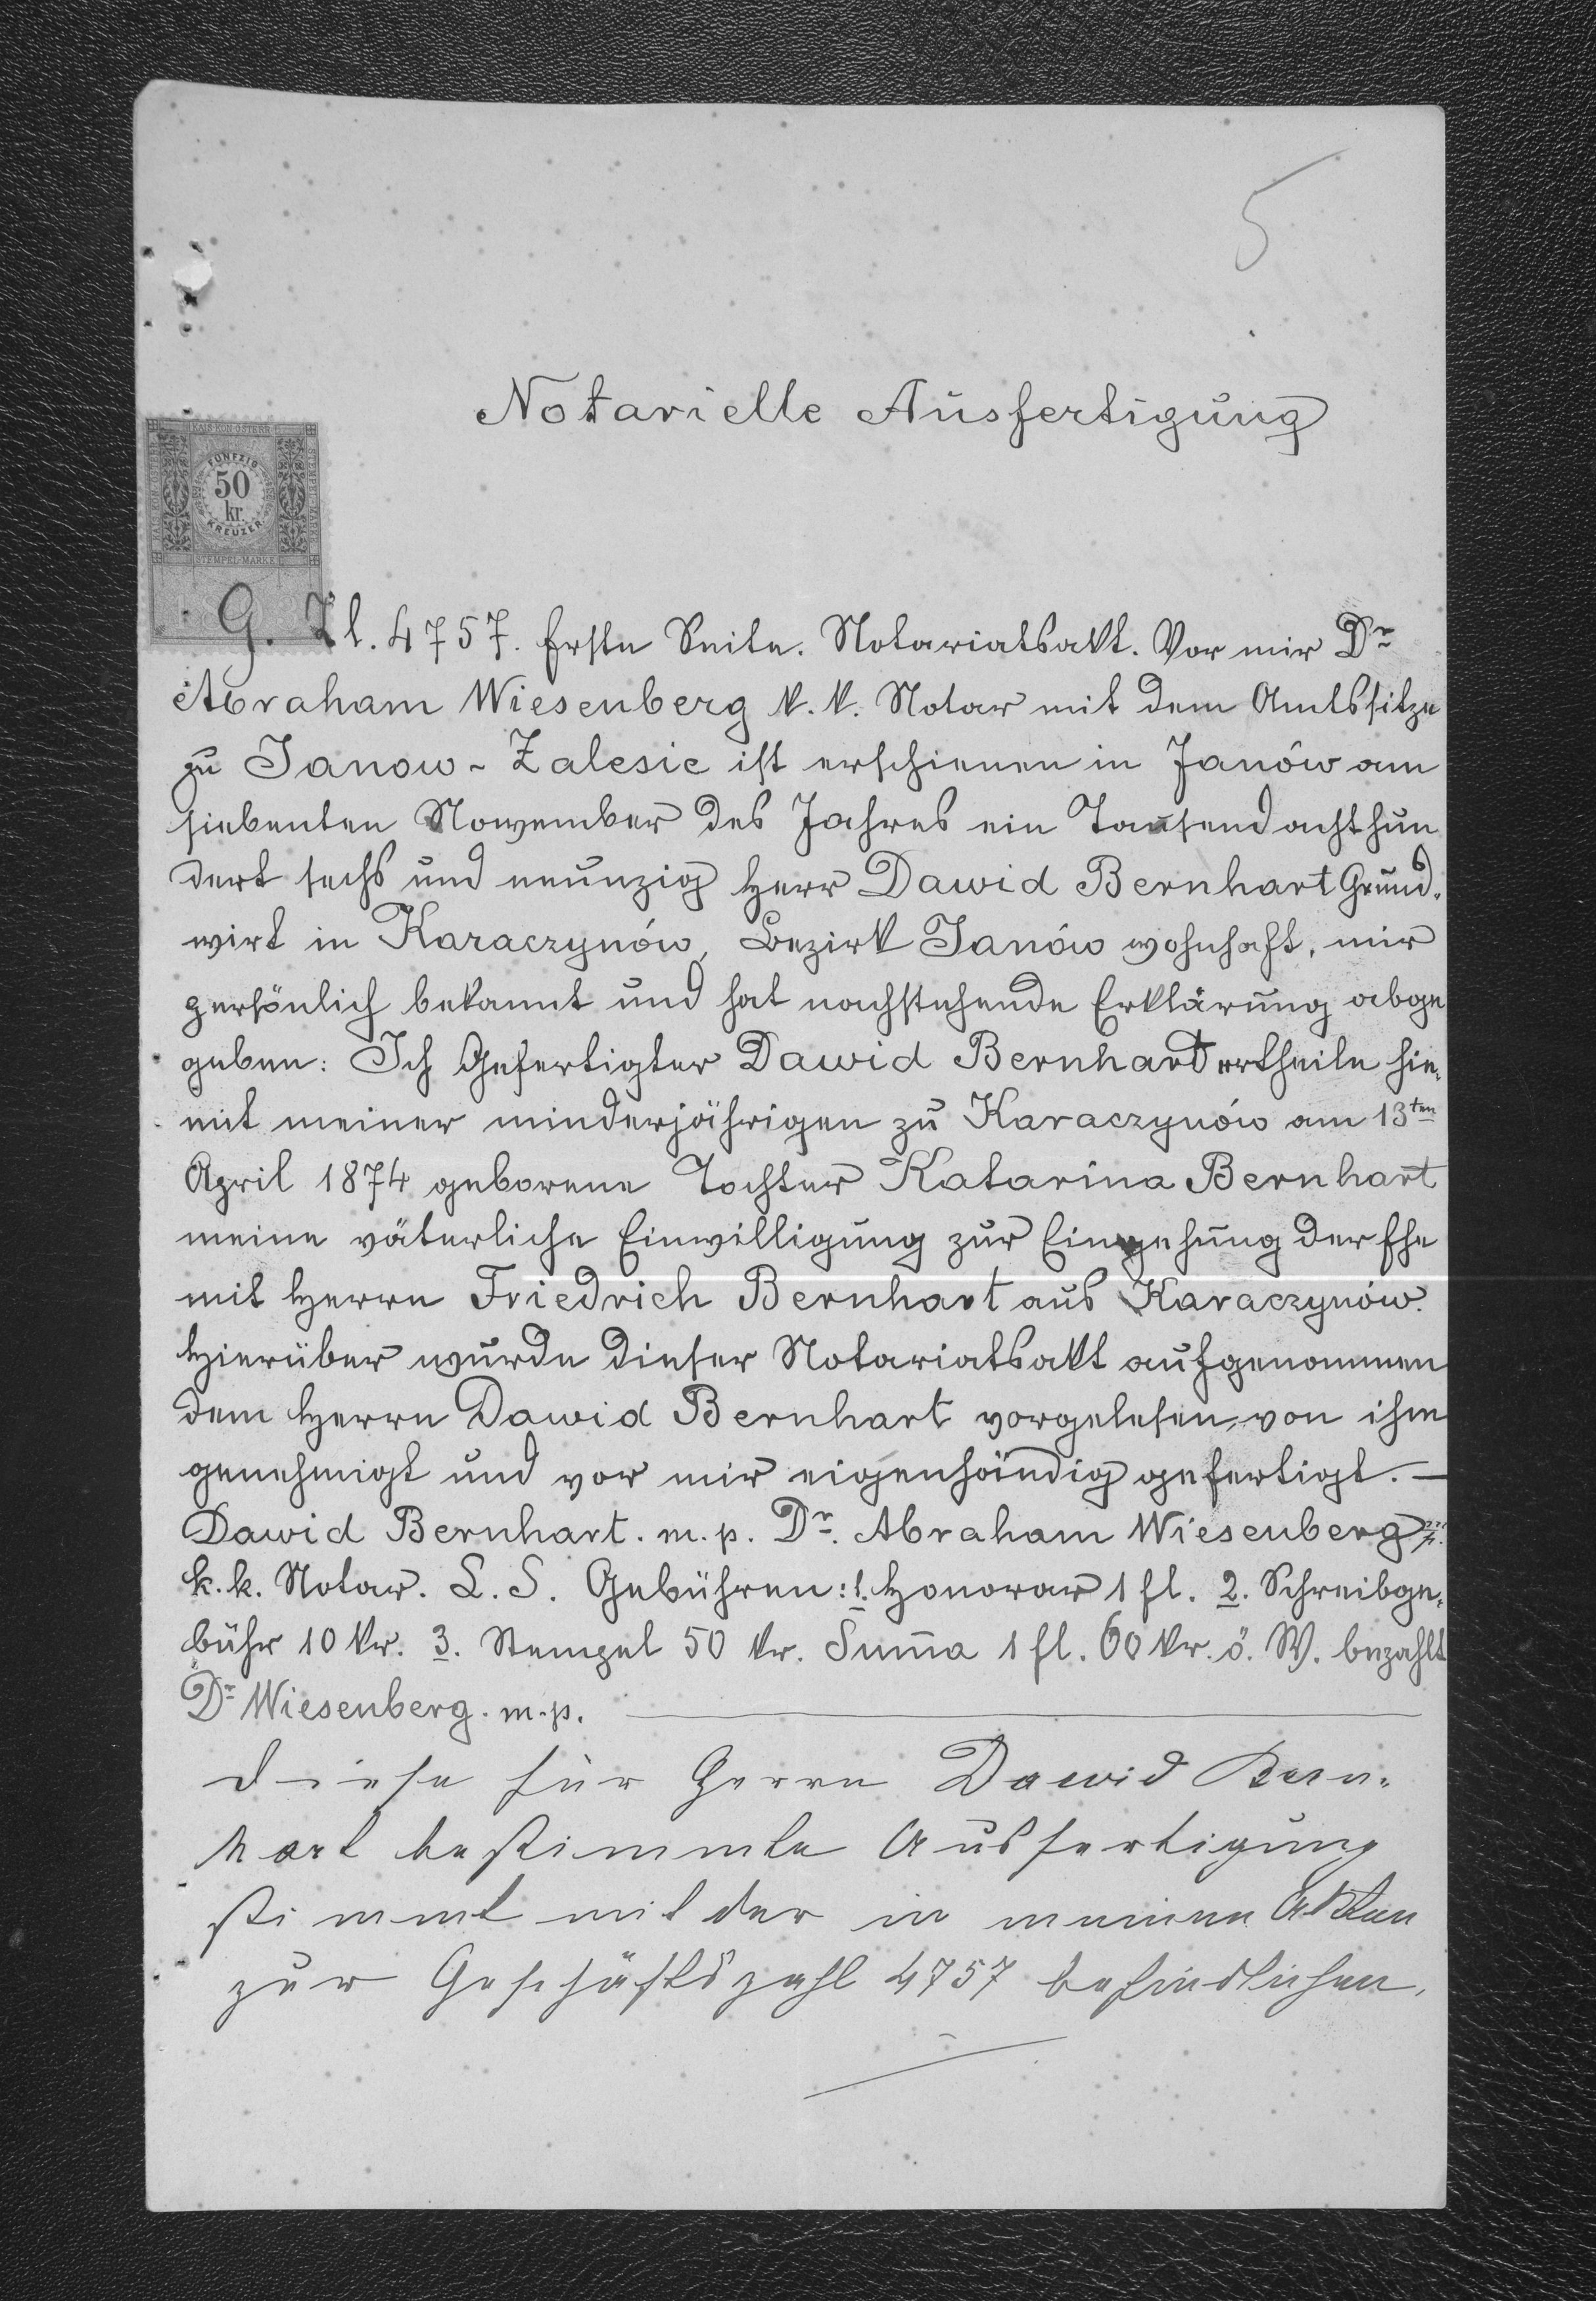 5
Notarielle Ausfertigung
KAIS. KÖN. ÖSTERR.
FÜNFZIG
50
kr.
KREUZER
STEMPEL-MARKE
G. Zl. 4757. Erste Seite. Notariatsakt. Vor mir Dr
Abraham Wiesenberg k. k. Notar mit dem Amtssitze
zu Janow - Zalesie ist erschienen in Janów am
siebenten Nowember des Jahres ein Tausend achthun
dert sechs und neunzig Herr Dawid Bernhart Grund-
wirt in Karaczynów, Bezirk Janów wohnhaft, mir
persönlich bekannt und hat nachstehende Erklärung abge
geben: Ich Gefertigter Dawid Bernhart ertheile hie-
mit meiner minderjährigen zu Karaczynów am 13ten
April 1874 geborene Tochter Katarina Bernhart
meine väterliche Einwilligung zur Eingehung der Ehe
mit Herrn Friedrich Bernhart aus Karaczynów.
Hierüber wurde dieser Notariatsakt aufgenommen
dem Herrn Dawid Bernhart vorgelesen, von ihm
genehmigt und vor mir eigenhändig gefertigt. —
Dawid Bernhart. m. p. Dr. Abraham Wiesenberg m.p.
k. k. Notar. L. S. Gebühren: 1. Honorar 1 fl. 2. Schreibge-
bühr 10 kr. 3. Stempel 50 kr. Sum̄a 1 fl. 60 kr. ö. W. bezahlt
Dr Wiesenberg. m. p.
Diese für Herrn Dawid Bern-
hart bestimmte Ausfertigung
stimmt mit der in meinen Akten
zur Geschäftszahl 4757 befindlichen